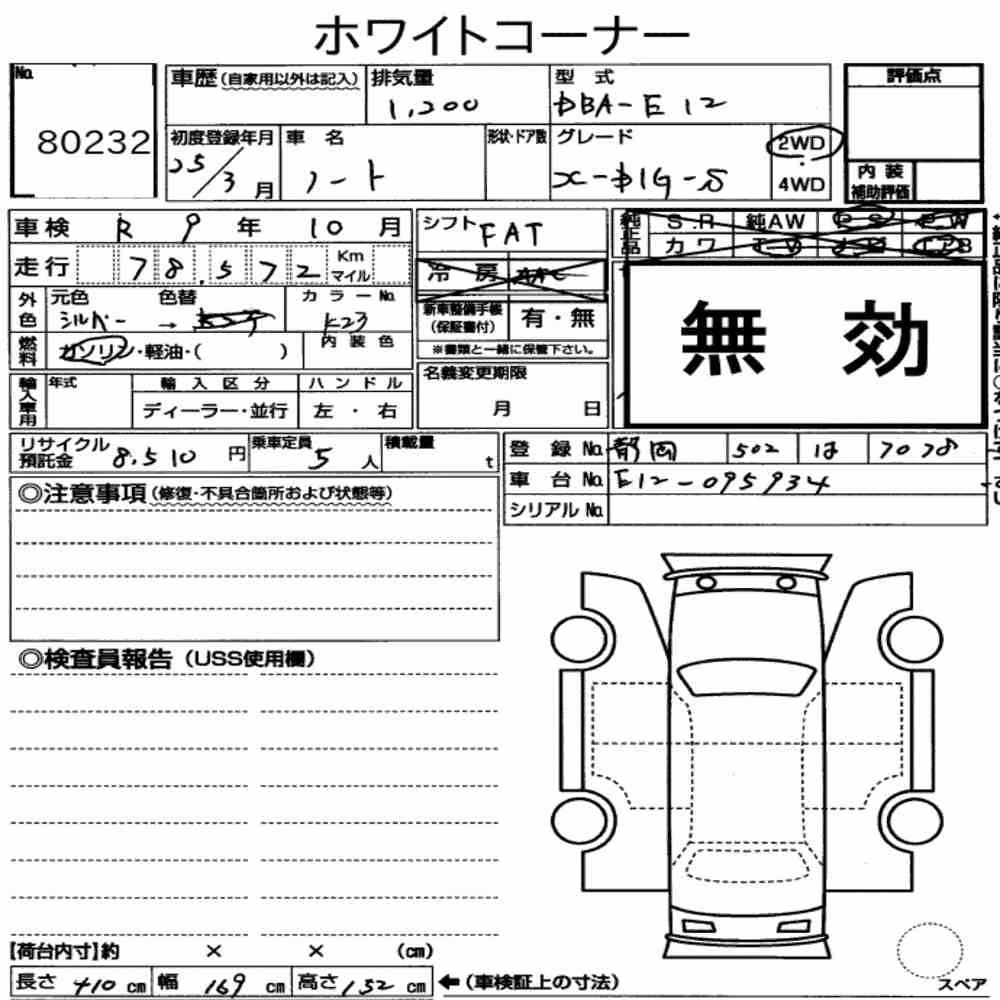 ホワイトコーナー
No. 80232
車歴(自家用以外は記入) 排気量 1,200 型式 DBA-E12
初度登録年月 25/3月 車名 ノート 形状・ドア数 グレード X-DIG-S 2WD 4WD
評価点
内装補助評価
車検 R 9年 10月
走行 78,572 Km マイル
外色 元色 シルバー 色替 → カラーNo. K23
燃料 ガソリン・軽油・( ) 内装色
輸入車用 年式 輸入区分 ディーラー・並行 ハンドル 左・右
シフト FAT
冷房 AAC
新車整備手帳(保証書付) 有・無
※書類と一緒に保管下さい。
名義変更期限 月 日
純正品 S.R 純AW P.S P.W
カワ T.V
無効
リサイクル預託金 8,510円 乗車定員 5人 積載量 t
登録No. 静岡 502 は 7078
車台No. E12-095934
シリアルNo.
◎注意事項(修復・不具合箇所および状態等)
◎検査員報告(USS使用欄)
【荷台内寸】約 × × (cm)
長さ 410 cm 幅 169 cm 高さ 152 cm ←(車検証上の寸法)
スペア